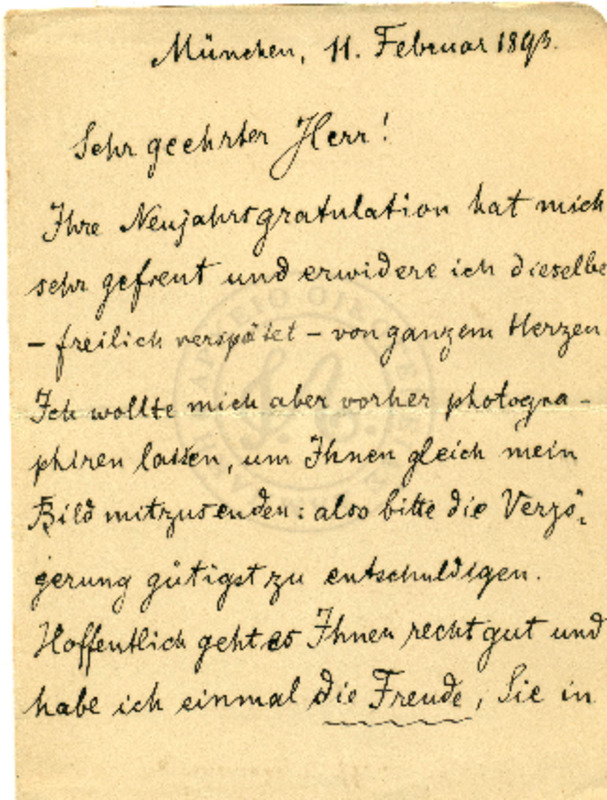 München, 11. Februar 1893.
Sehr geehrter Herr!
Ihre Neujahrsgratulation hat mich
sehr gefreut und erwidere ich dieselbe
– freilich verspätet – von ganzem Herzen
Ich wollte mich aber vorher photogra-
phiren lassen, um Ihnen gleich mein
Bild mitzusenden: also bitte die Verzö-
gerung gütigst zu entschuldigen.
Hoffentlich geht es Ihnen recht gut und
habe ich einmal die Freude, Sie in